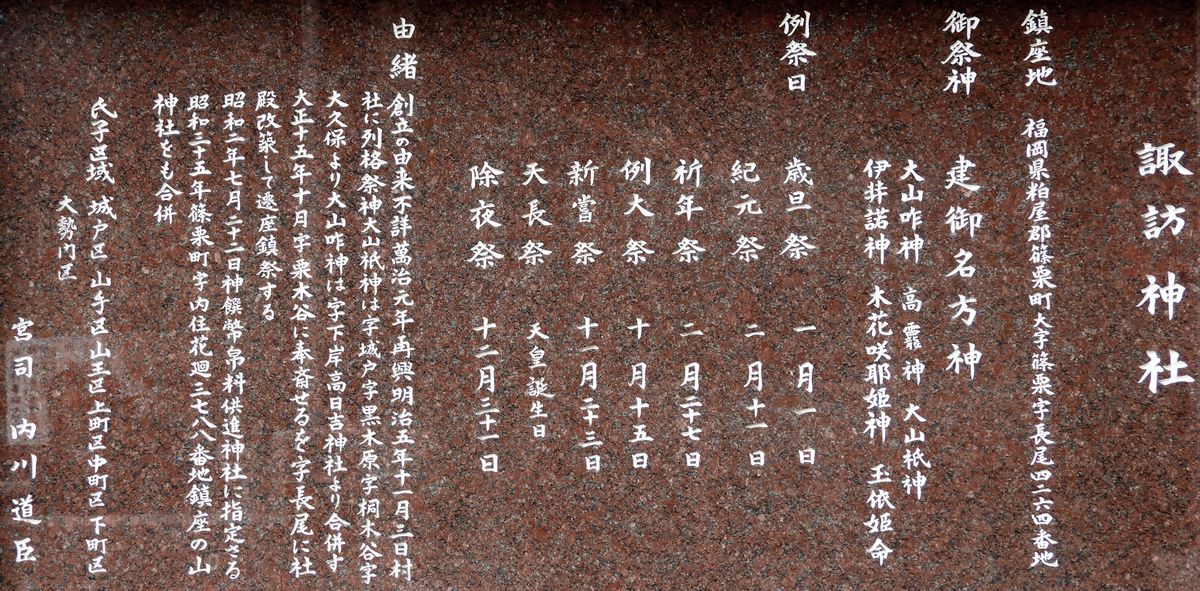 諏訪神社
鎮座地 福岡県粕屋郡篠栗町大字篠栗字長尾四二六四番地
御祭神 建御名方神
大山咋神 高龗神 大山祇神
伊弉諾神 木花咲耶姫神 玉依姫命
例祭日
歳旦祭 一月一日
紀元祭 二月十一日
祈年祭 二月二十七日
例大祭 十月十五日
新嘗祭 十一月二十三日
天長祭 天皇誕生日
除夜祭 十二月三十一日
由緒 創立の由来不詳萬治元年再興明治五年十一月三日村
社に列格祭神大山祇神は字城戸字黒木原字桐木谷字
大久保より大山咋神は字下岸高日吉神社より合併す
大正十五年十月字栗木谷に奉斎せるを字長尾に社
殿改築して遷座鎮祭する
昭和二年七月二十二日神饌幣帛料供進神社に指定さる
昭和三十五年篠栗町字内住花廻三七八八番地鎮座の山
神社をも合併
氏子区域 城戸区 山手区 山王区 上町区 中町区 下町区
大勢門区
宮司 内川道臣